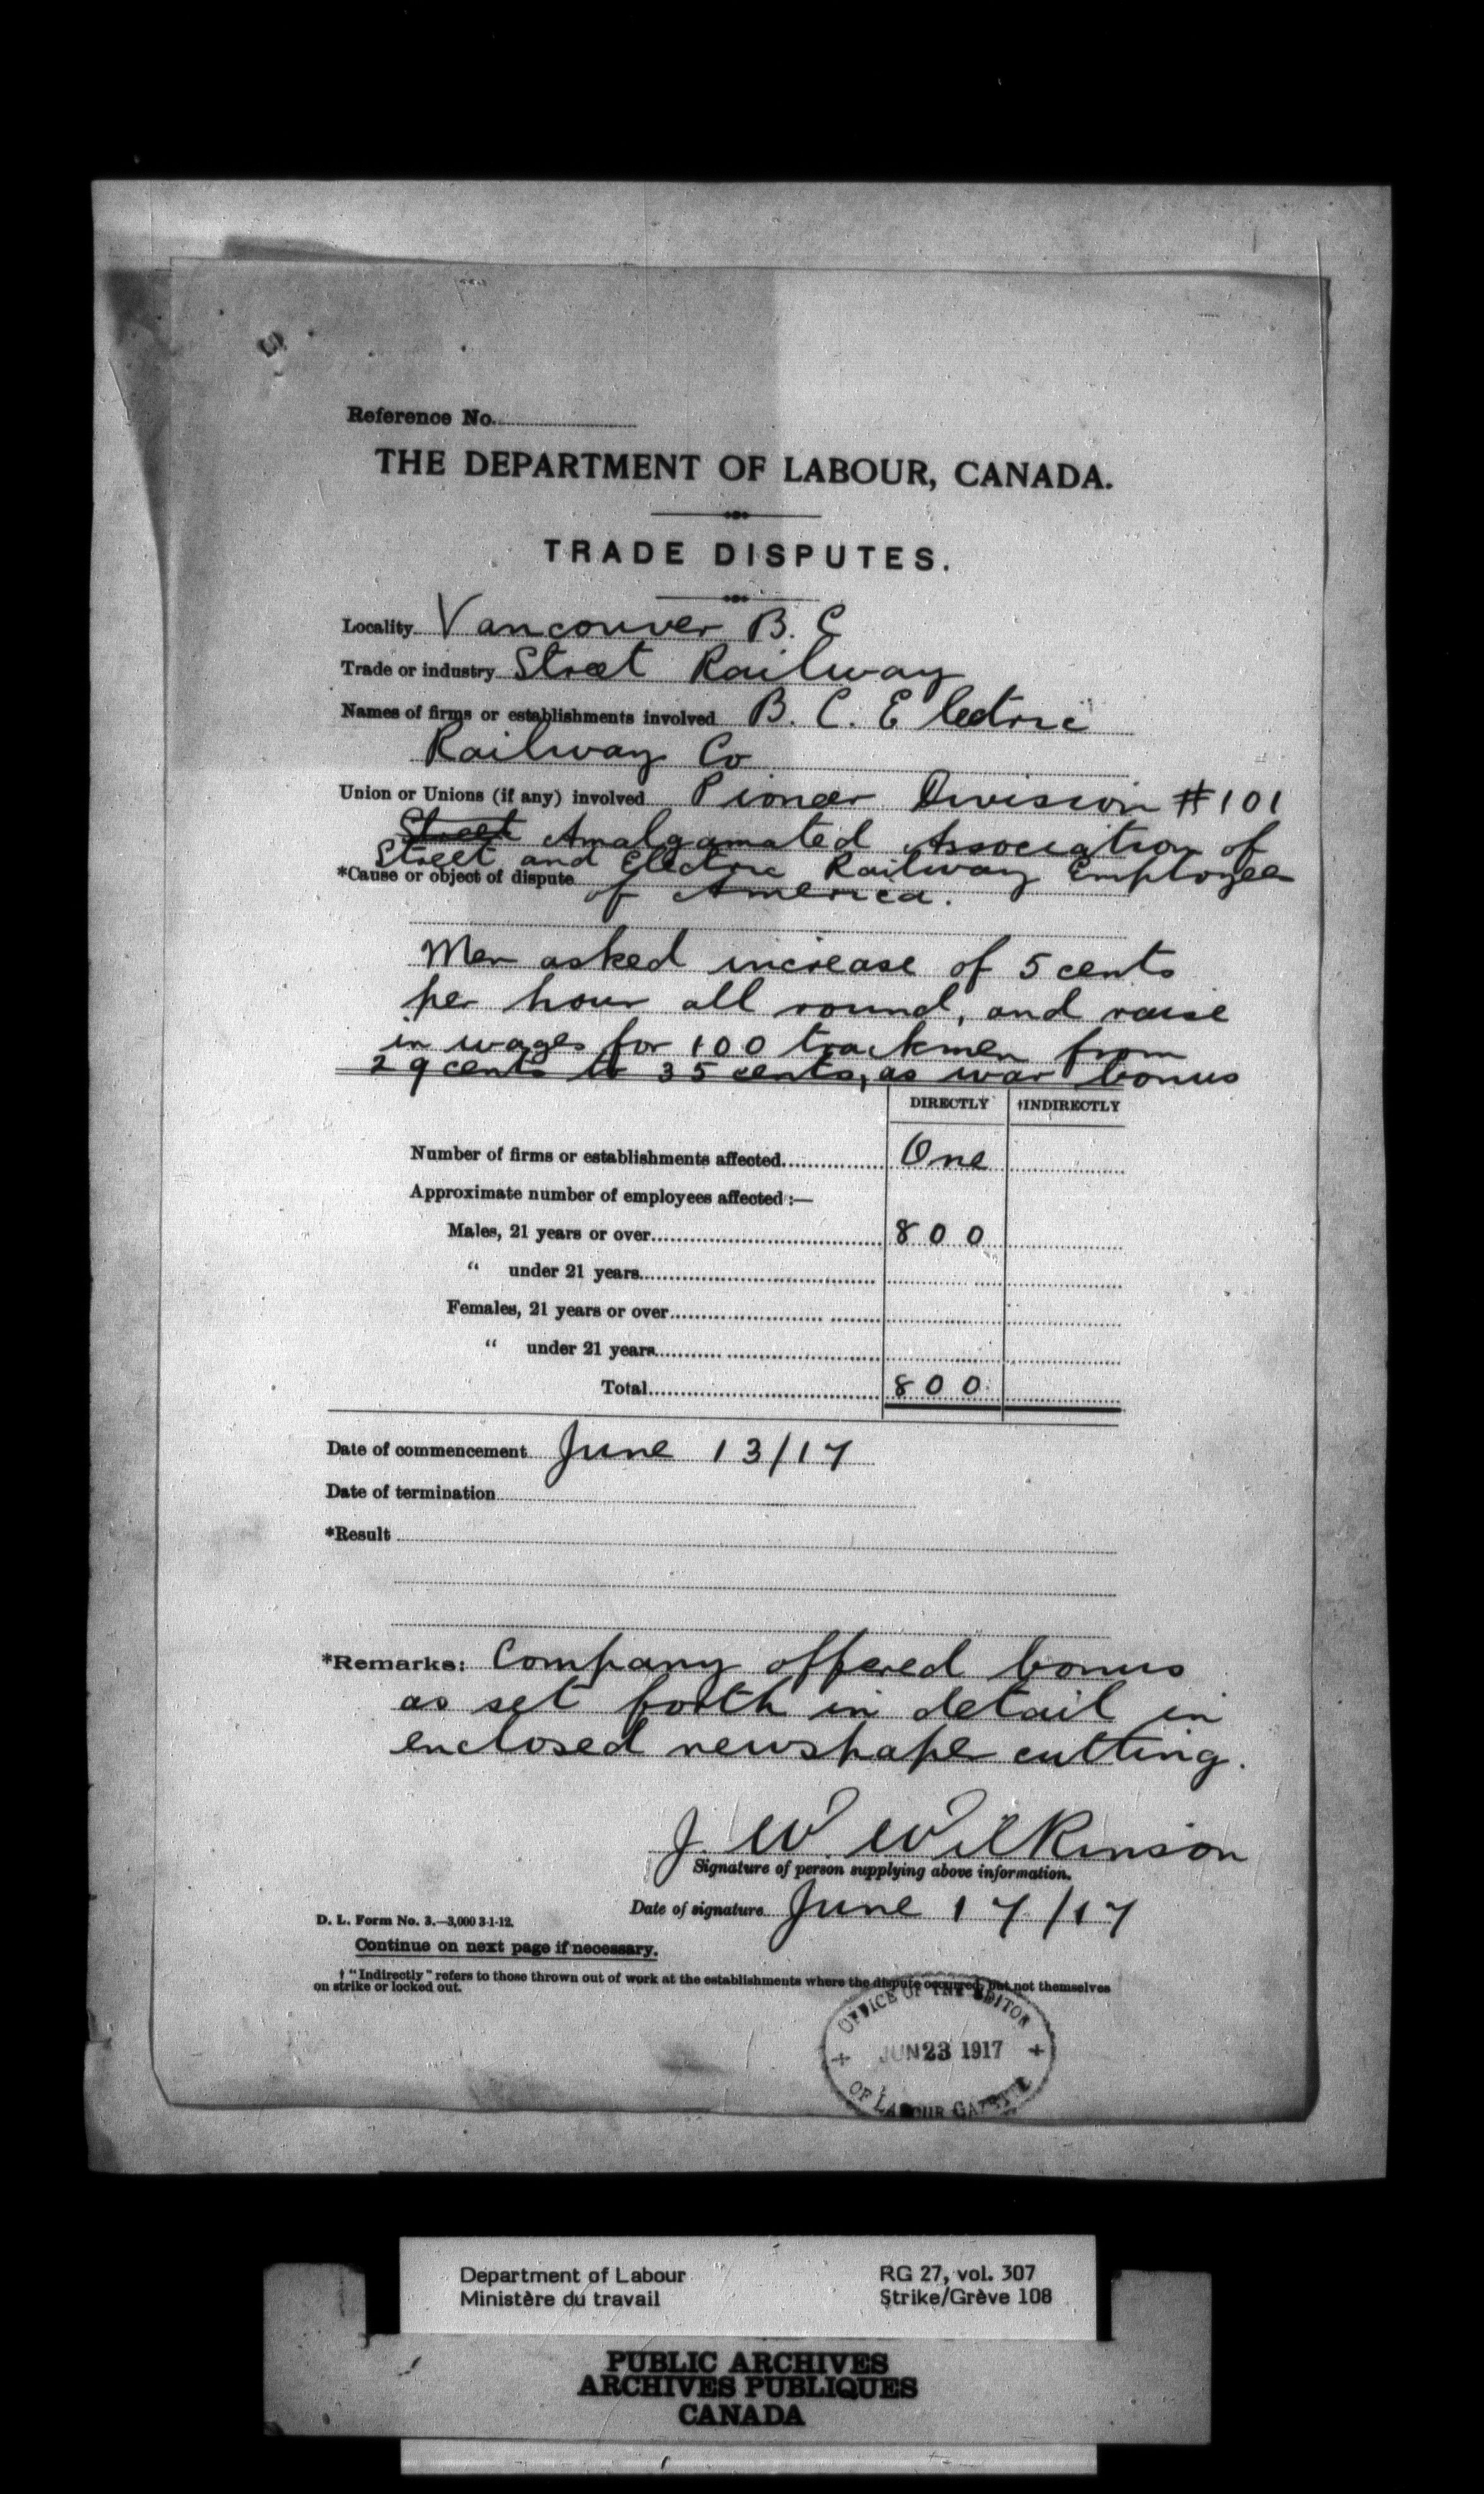 Reference No.
THE DEPARTMENT OF LABOUR, CANADA.
TRADE DISPUTES.
Locality Vancouver B. C
Trade or industry Street Railway
Names of firms or establishments involved B. C. Electric
Railway Co
Union or Unions (if any) involved Pioneer Division #101
Street Amalgamated Association of
Street and Electric Railway Employees
*Cause or object of dispute
of America.
Men asked increase of 5 cents
per hour all round, and raise
in wages for 100 trackmen from
29 cents to 35 cents, as war bonus
DIRECTLY †INDIRECTLY
Number of firms or establishments affected One
Approximate number of employees affected:—
Males, 21 years or over 800
“ under 21 years
Females, 21 years or over
“ under 21 years
Total 800
Date of commencement June 13/17
Date of termination
*Result
*Remarks: Company offered bonus
as set forth in detail in
enclosed newspaper cutting.
J. W. Wilkinson
Signature of person supplying above information.
Date of signature June 17/17
D. L. Form No. 3.—3,000 3-1-12.
Continue on next page if necessary.
† "Indirectly" refers to those thrown out of work at the establishments where the dispute occurred, but not themselves
on strike or locked out.
OFFICE OF THE EDITOR
JUN 23 1917
OF LABOUR GAZETTE
Department of Labour RG 27, vol. 307
Ministère du travail Strike/Grève 108
PUBLIC ARCHIVES
ARCHIVES PUBLIQUES
CANADA